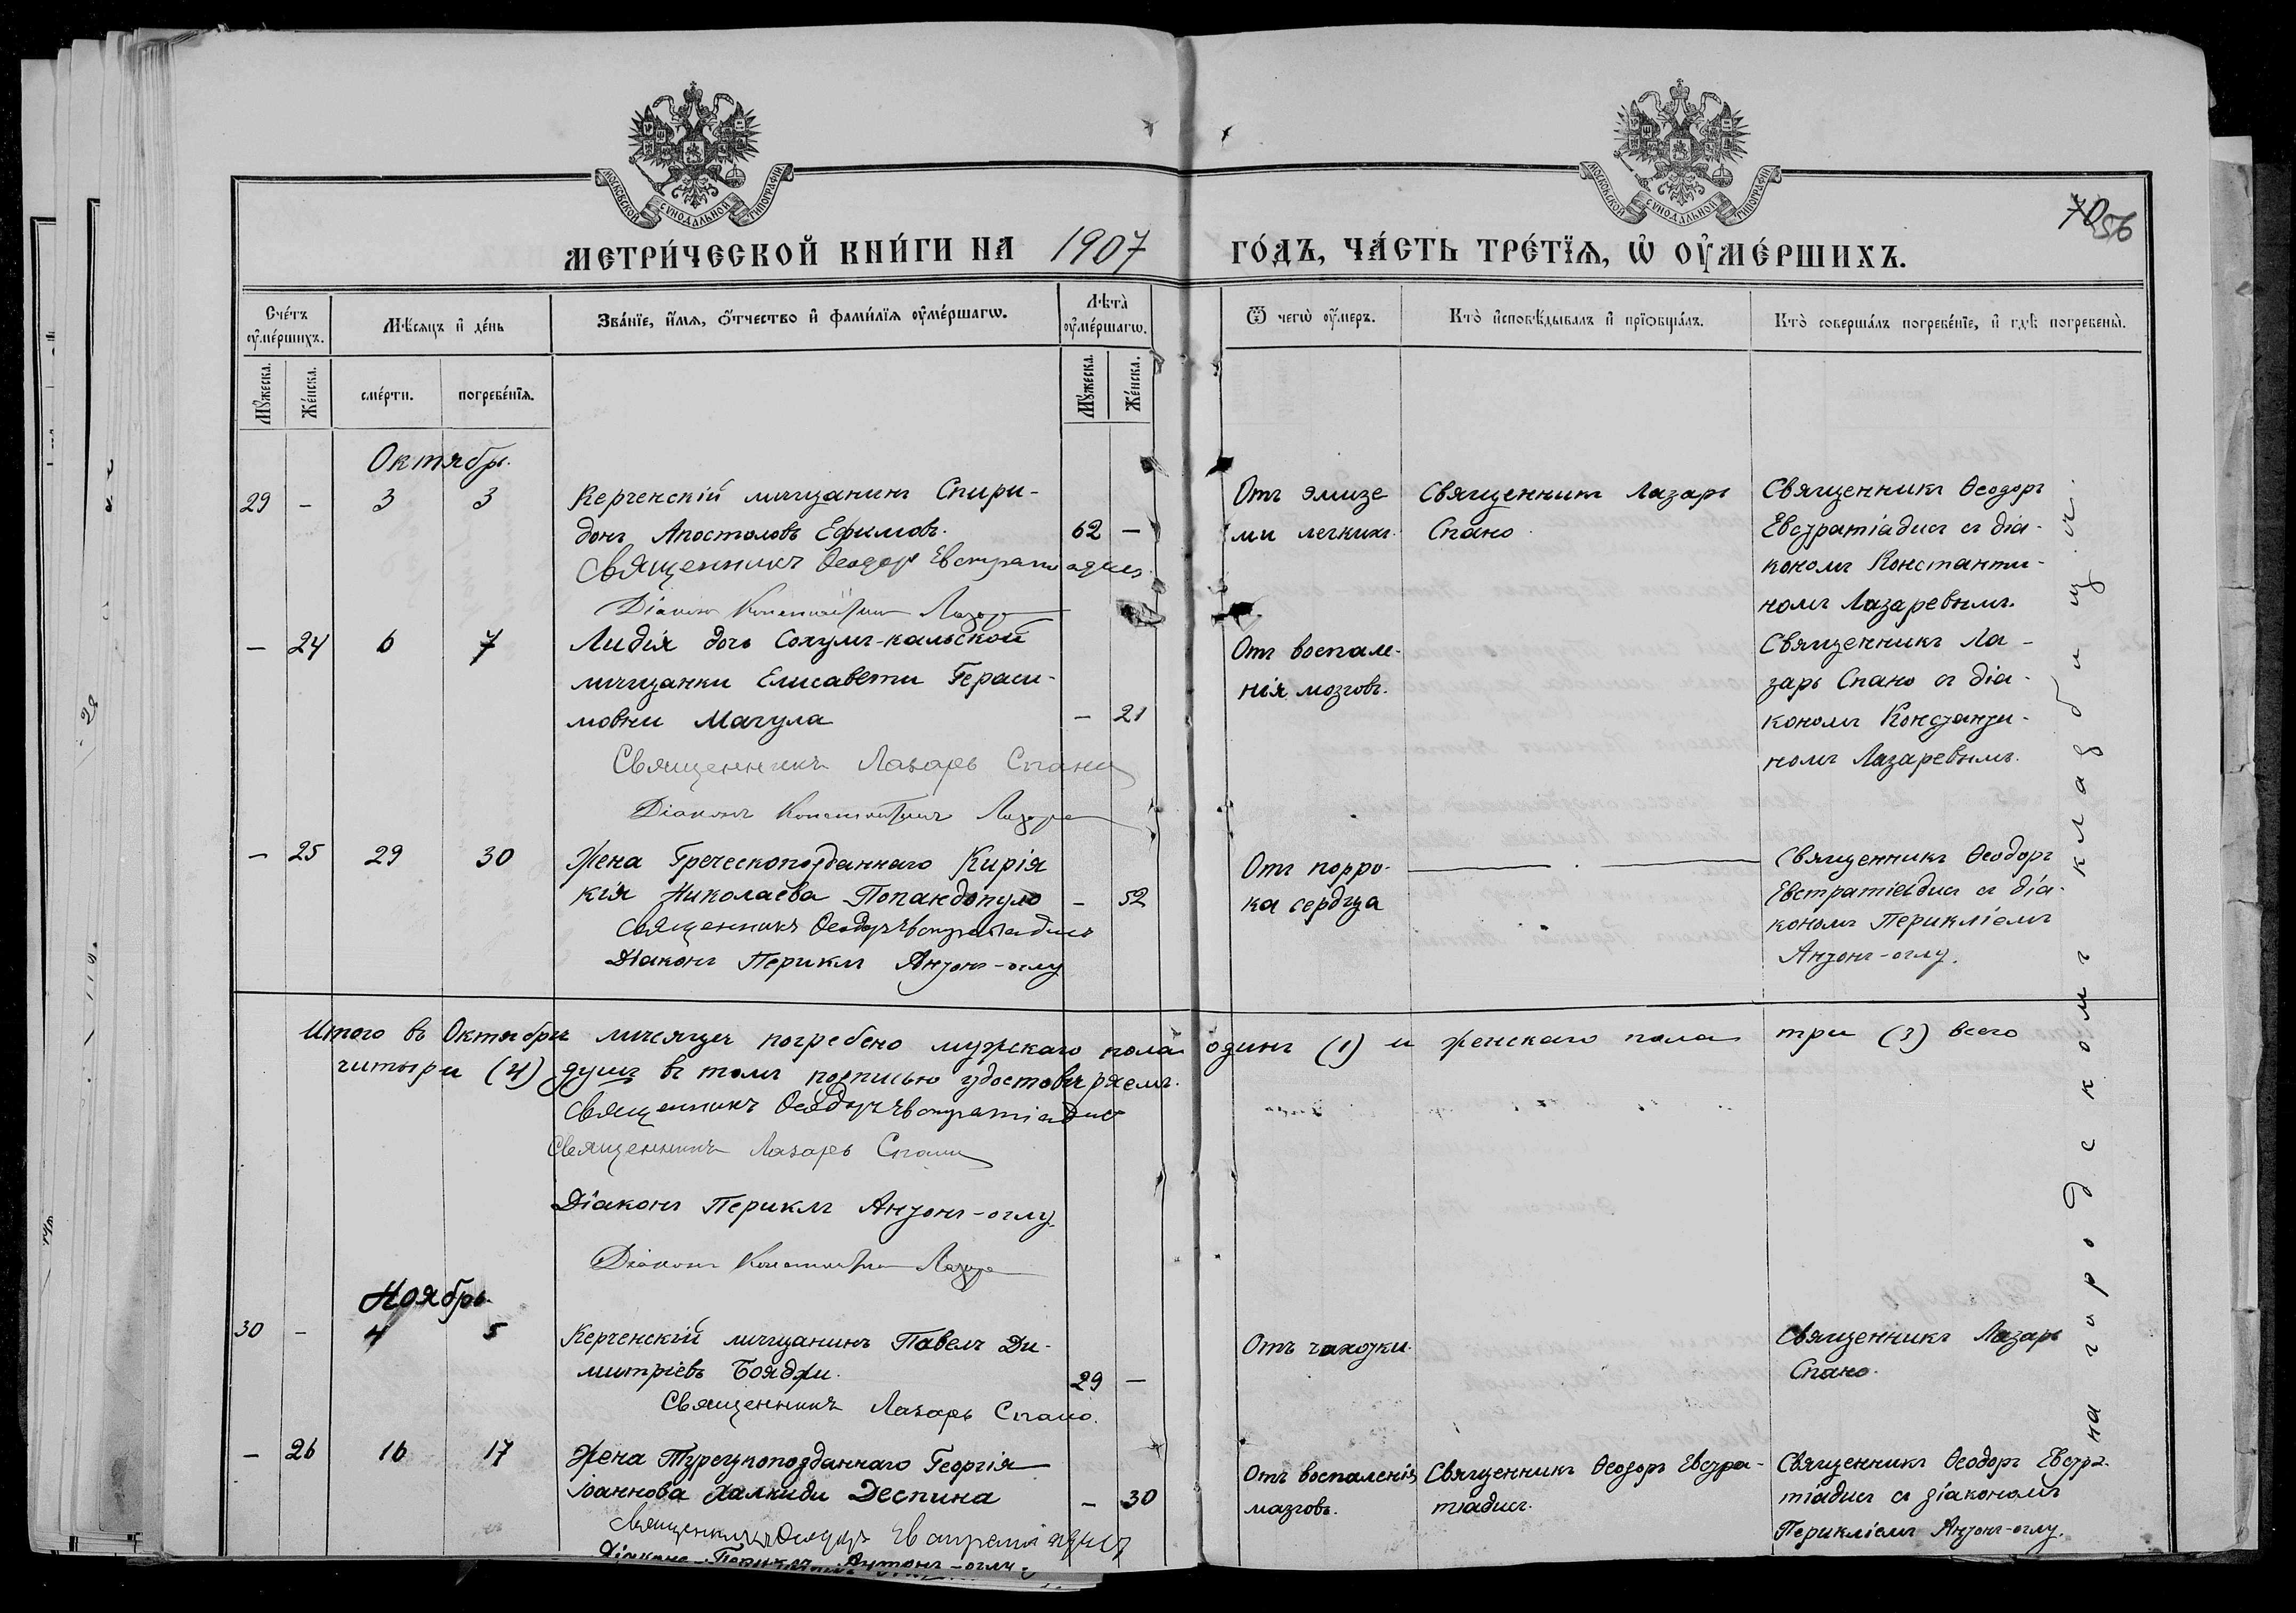 МОСКОВСКОЙ СѴНОДАЛЬНОЙ ТИПОГРАФІИ
МОСКОВСКОЙ СѴНОДАЛЬНОЙ ТИПОГРАФІИ
70 56
МЕТРИ́ЧЕСКОЙ КНИ́ГИ НА 1907 ГО́ДЪ, ЧА́СТЬ ТРЕ́ТЇѦ, Ѡ҆ ОУ҆МЕ́РШИХЪ.
Сче́тъ оу҆ме́ршихъ.
Мѣ́сѧцъ и҆ де́нь
Зва́нїе, и҆́мѧ, ѻ҆́тчество и҆ фами́лїѧ оу҆ме́ршагѡ.
Лѣ̑та оу҆ме́ршагѡ.
Ѿ чегѡ̀ оу҆́меръ.
Кто̀ и҆сповѣ́дывалъ и҆ прїѡбща́лъ.
Кто̀ соверша́лъ погребе́нїе, и҆ гдѣ̀ погребены̀.
Мꙋ́жеска.
Же́нска.
сме́рти.
погребе́нїѧ.
Мꙋ́жеска.
Же́нска.
Октябрь.
29 - 3 3 Керченскій мѣщанинъ Спири-
донъ Апостоловъ Ефимовъ. 62 -
Священникъ Ѳеодоръ Евстратіадисъ
Діаконъ Константинъ Лазаре
Отъ эмизе
ми легкихъ.
Священникъ Лазарь
Спано.
Священникъ Ѳеодоръ
Евстратіадисъ съ діа-
кономъ Константи-
номъ Лазаревымъ.
- 24 6 7 Лидія дочь Сохумъ-кальской
мѣщанки Елисаветы Гераси-
мовны Магула - 21
Священникъ Лазарь Спано
Діаконъ Константинъ Лазаре
Отъ воспале-
нія мозговъ.
Священникъ Ла-
зарь Спано съ діа-
кономъ Константи-
номъ Лазаревымъ.
- 25 29 30 Жена Греческоподданнаго Кирія
кія Николаева Попандопуло - 52
Священникъ Ѳеодоръ Евстратіадисъ
Діаконъ Периклъ Антонъ-оглу
Отъ порро-
ка сердца
Священникъ Ѳеодоръ
Евстратіадисъ съ діа-
кономъ Перикліемъ
Антонъ-оглу.
Итого въ Октябрѣ мѣсяцѣ погребено мужскаго пола одинъ (1) и женскаго пола три (3) всего
читыри (4) душъ въ томъ подписью удостовѣряемъ.
Священникъ Ѳеодоръ Евстратіадис
Священникъ Лазарь Спано
Діаконъ Периклъ Антонъ-оглу.
Діаконъ Константинъ Лазаре
Ноябрь.
30 - 4 5 Керченскій мѣщанинъ Павелъ Ди-
митріевъ Бояджи. 29 -
Священникъ Лазарь Спано.
Отъ чахотки.
Священникъ Лазарь
Спано.
- 26 16 17 Жена Турецкоподданнаго Георгія
Іоаннова Халкиди Деспина - 30
Священникъ Ѳеодоръ Евстратіадисъ
Діаконъ Периклъ Антонъ-оглу.
Отъ воспаленія
мазговъ.
Священникъ Ѳеодоръ Евстра-
тіадисъ.
Священникъ Ѳеодоръ Евстра-
тіадисъ съ діакономъ
Перикліемъ Антонъ-оглу.
на городскомъ кладбищѣ.